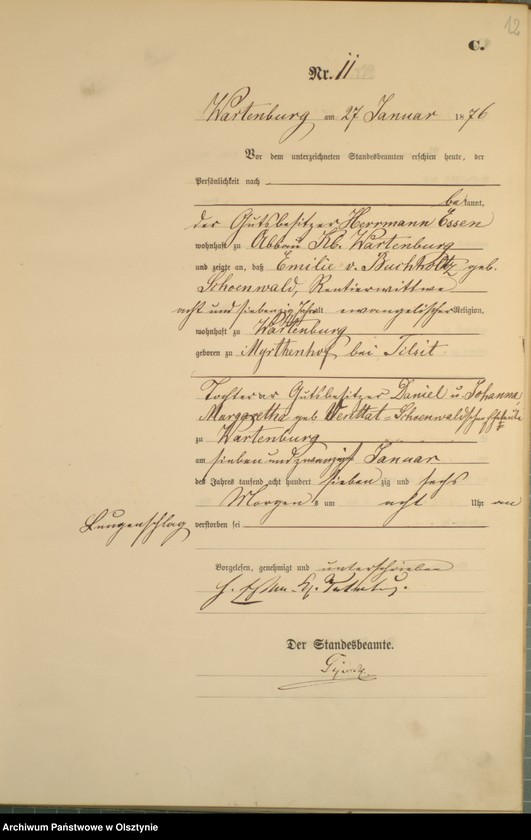 12
C.
Nr. 11
Wartenburg am 27 Januar 1876
Vor dem unterzeichneten Standesbeamten erschien heute, der
Persönlichkeit nach
bekannt,
der Gutsbesitzer Herrmann Essen
wohnhaft zu Abbau Kl. Wartenburg
und zeigte an, daß Emilie v. Buchholtz geb.
Schoenwald, Rentierwittwe
acht und siebenzig Jahre alt evangelischer Religion,
wohnhaft zu Wartenburg
geboren zu Myrthenhof bei Tilsit
Tochter der Gutsbesitzer Daniel u Johanna
Margaretha geb Schoenwaldschen Eheleute
zu Wartenburg
am sieben und zwanzigsten Januar
des Jahres tausend acht hundert siebenzig und sechs
Morgens um acht Uhr an
Lungenschlag verstorben sei
Vorgelesen, genehmigt und unterschrieben
Der Standesbeamte.
Archiwum Państwowe w Olsztynie